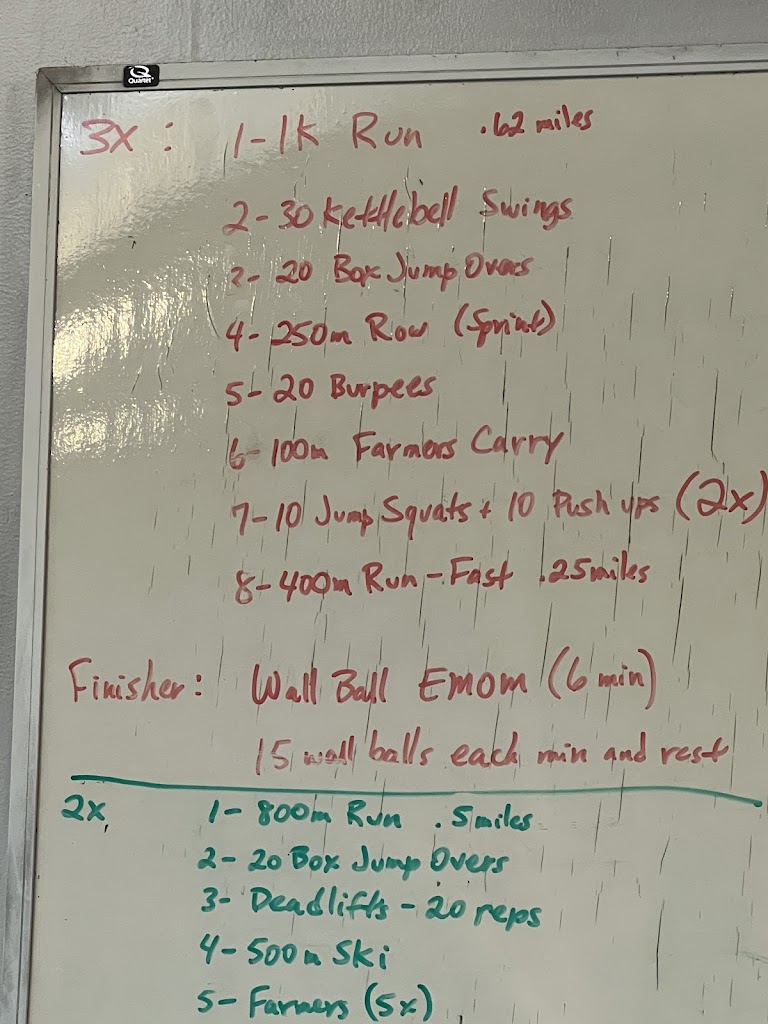 Quartet
3x : 1-1K Run .62 miles
2-30 Kettlebell Swings
3- 20 Box Jump Overs
4- 250m Row (Sprint)
5- 20 Burpees
6-100m Farmers Carry
7-10 Jump Squats + 10 Push ups (2x)
8-400m Run - Fast .25 miles
Finisher: Wall Ball EMOM (6 min)
15 wall balls each min and rest
2x 1- 800m Run .5 miles
2- 20 Box Jump Overs
3- Deadlifts - 20 reps
4-500m Ski
5- Farmers (5x)